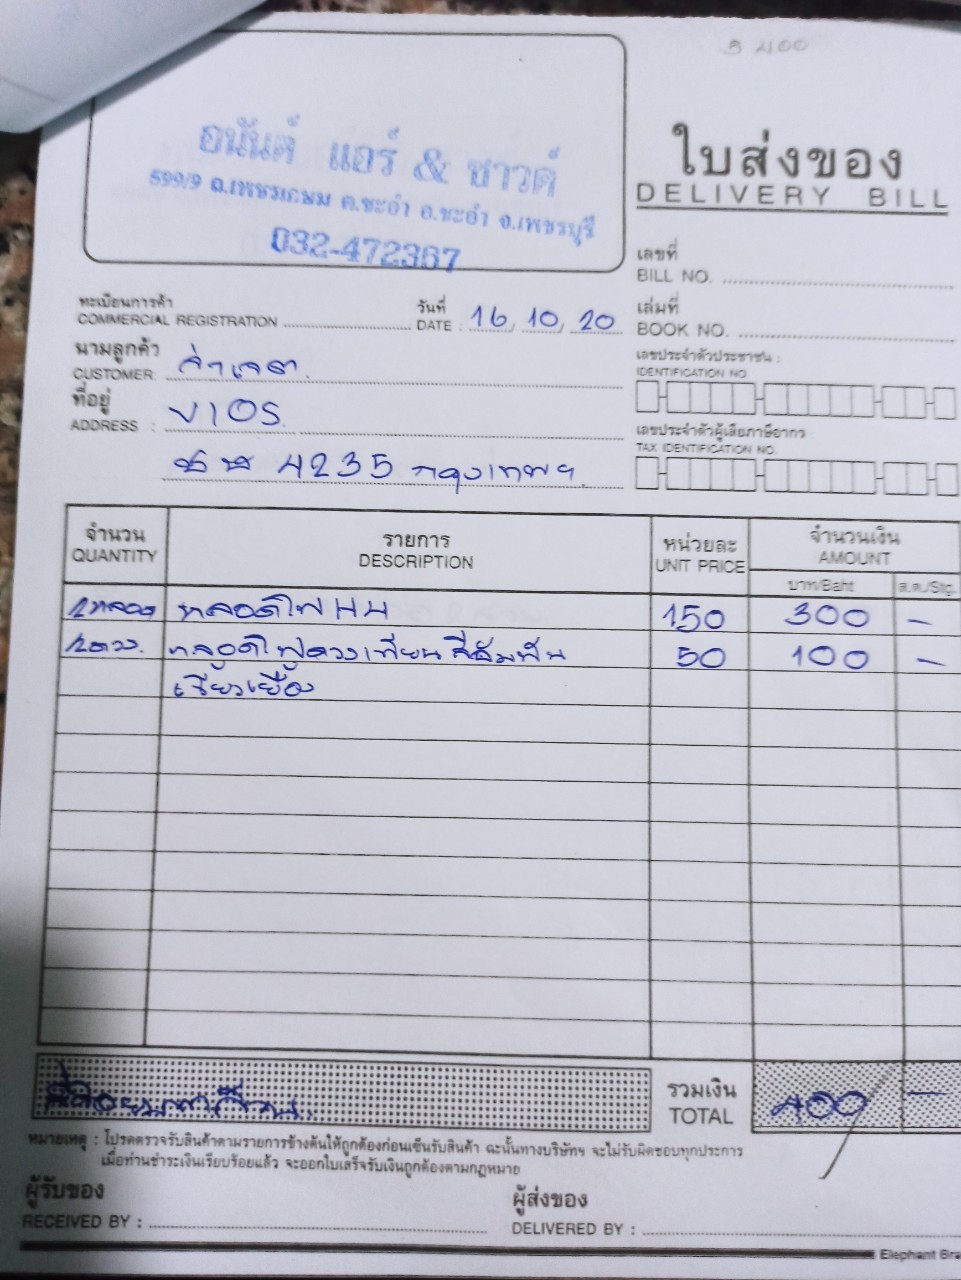 B 400
อนันต์ แอร์ & ซาวด์
599/9 ถ.เพชรเกษม ต.ชะอำ อ.ชะอำ จ.เพชรบุรี
032-472367
ใบส่งของ
DELIVERY BILL
เลขที่
BILL NO.
ทะเบียนการค้า
COMMERCIAL REGISTRATION
วันที่
DATE : 16/10/20
เล่มที่
BOOK NO.
นามลูกค้า
CUSTOMER:
เลขประจำตัวประชาชน :
IDENTIFICATION NO.
ที่อยู่
ADDRESS : VIOS.
4235 กรุงเทพฯ
เลขประจำตัวผู้เสียภาษีอากร :
TAX IDENTIFICATION NO.
จำนวน
QUANTITY
รายการ
DESCRIPTION
หน่วยละ
UNIT PRICE
จำนวนเงิน
AMOUNT
บาท/Baht
ส.ต./Stg.
2หลอด หลอดไฟ H4 150 300 -
2ดวง. 50 100 -
รวมเงิน
TOTAL
400 -
หมายเหตุ : โปรดตรวจรับสินค้าตามรายการข้างต้นให้ถูกต้องก่อนเซ็นรับสินค้า ฉะนั้นทางบริษัทฯ จะไม่รับผิดชอบทุกประการ
เมื่อท่านชำระเงินเรียบร้อยแล้ว จะออกใบเสร็จรับเงินถูกต้องตามกฎหมาย
ผู้รับของ
RECEIVED BY :
ผู้ส่งของ
DELIVERED BY :
Elephant Bra